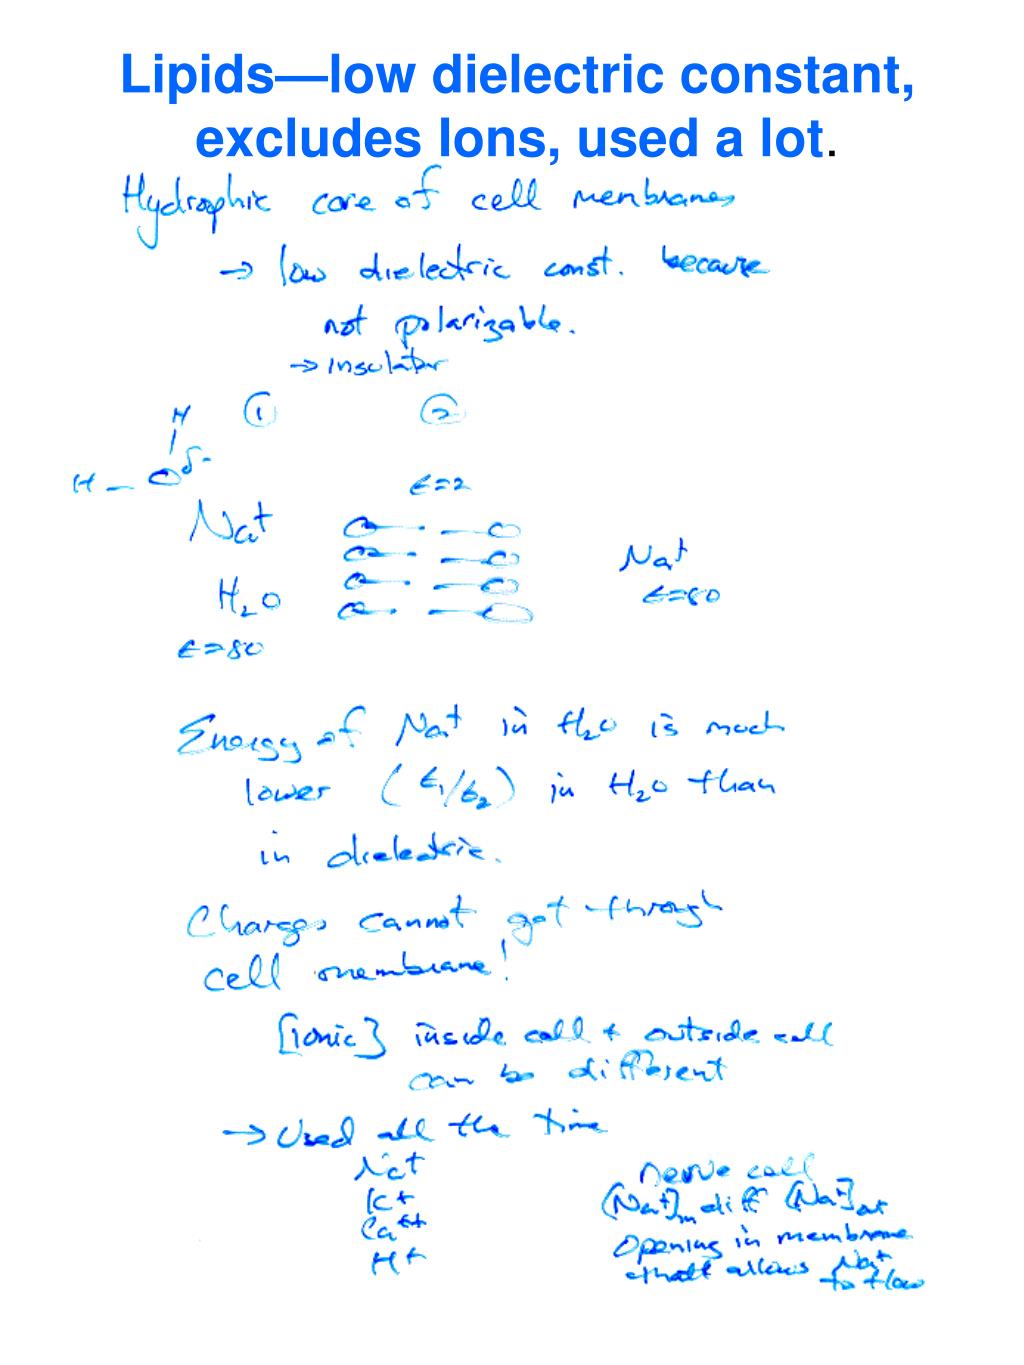 Lipids—low dielectric constant,
excludes Ions, used a lot.
Hydrophic core of cell menbranes
→ low dielectric const. because
not polarizable.
→ insulator
H ① ②
H – O δ-
ε=2
Na+
Na+
H₂O ε=80
ε=80
Energy of Na+ in H₂O is much
lower (ε₁/ε₂) in H₂O than
in dielectric.
Charges cannot get through
cell membrane!
[ionic] inside cell + outside cell
can be different
→ Used all the time
Na+ nerve cell
K+ [Na+]in diff [Na+]out
Ca++ Opening in membrane
H+ that allows Na+
to flow